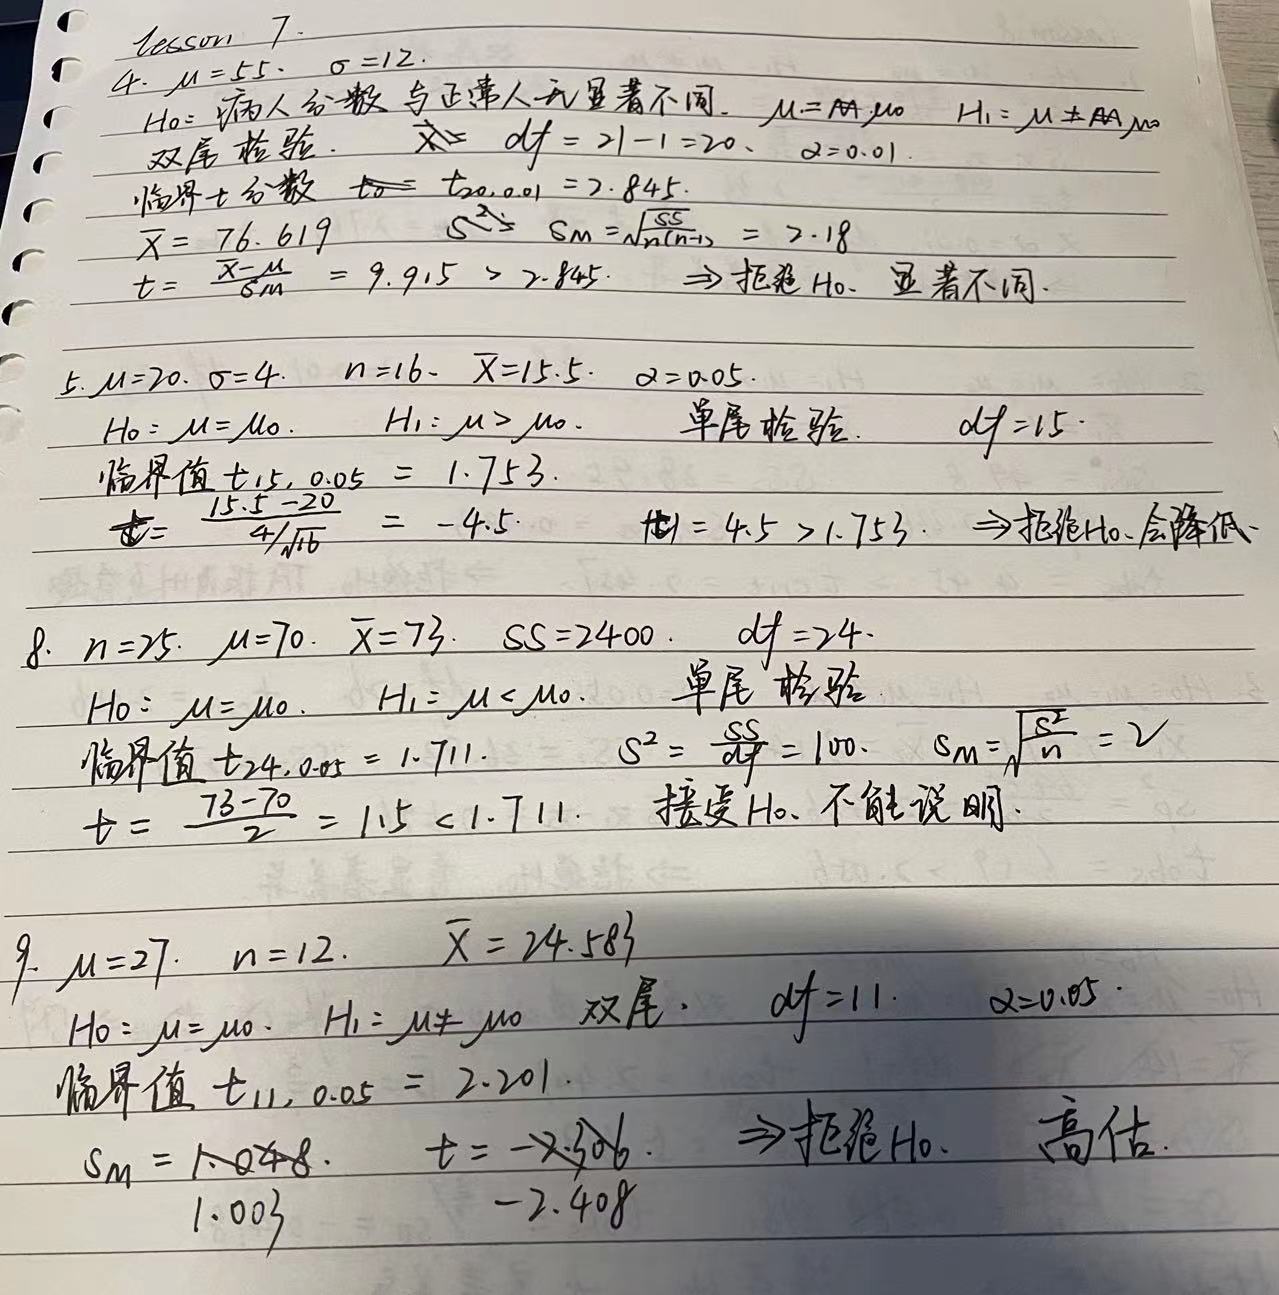 lesson 7.
4. μ=55. σ=12.
H₀: 病人分数与正常人无显著不同. μ=μ₀ H₁: μ≠μ₀
双尾检验. df=21-1=20. α=0.01.
临界t分数 t₂₀,₀.₀₁=2.845.
X̄=76.619 S_M=√(SS/n(n-1))=2.18
t=(X̄-μ)/S_M=9.915>2.845. ⇒拒绝H₀. 显著不同.
5. μ=20. σ=4. n=16. X̄=15.5. α=0.05.
H₀: μ=μ₀. H₁: μ>μ₀. 单尾检验. df=15.
临界值 t₁₅,₀.₀₅=1.753.
t=(15.5-20)/(4/√16)=-4.5. |t|=4.5>1.753. ⇒拒绝H₀.会降低.
8. n=25. μ=70. X̄=73. SS=2400. df=24.
H₀: μ=μ₀. H₁: μ<μ₀. 单尾检验.
临界值 t₂₄,₀.₀₅=1.711. S²=SS/df=100. S_M=√(S²/n)=2
t=(73-70)/2=1.5<1.711. 接受H₀. 不能说明.
9. μ=27. n=12. X̄=24.583
H₀: μ=μ₀. H₁: μ≠μ₀ 双尾. df=11. α=0.05.
临界值 t₁₁,₀.₀₅=2.201.
S_M=1.048. t=-2.306. ⇒拒绝H₀. 高估.
1.003 -2.408